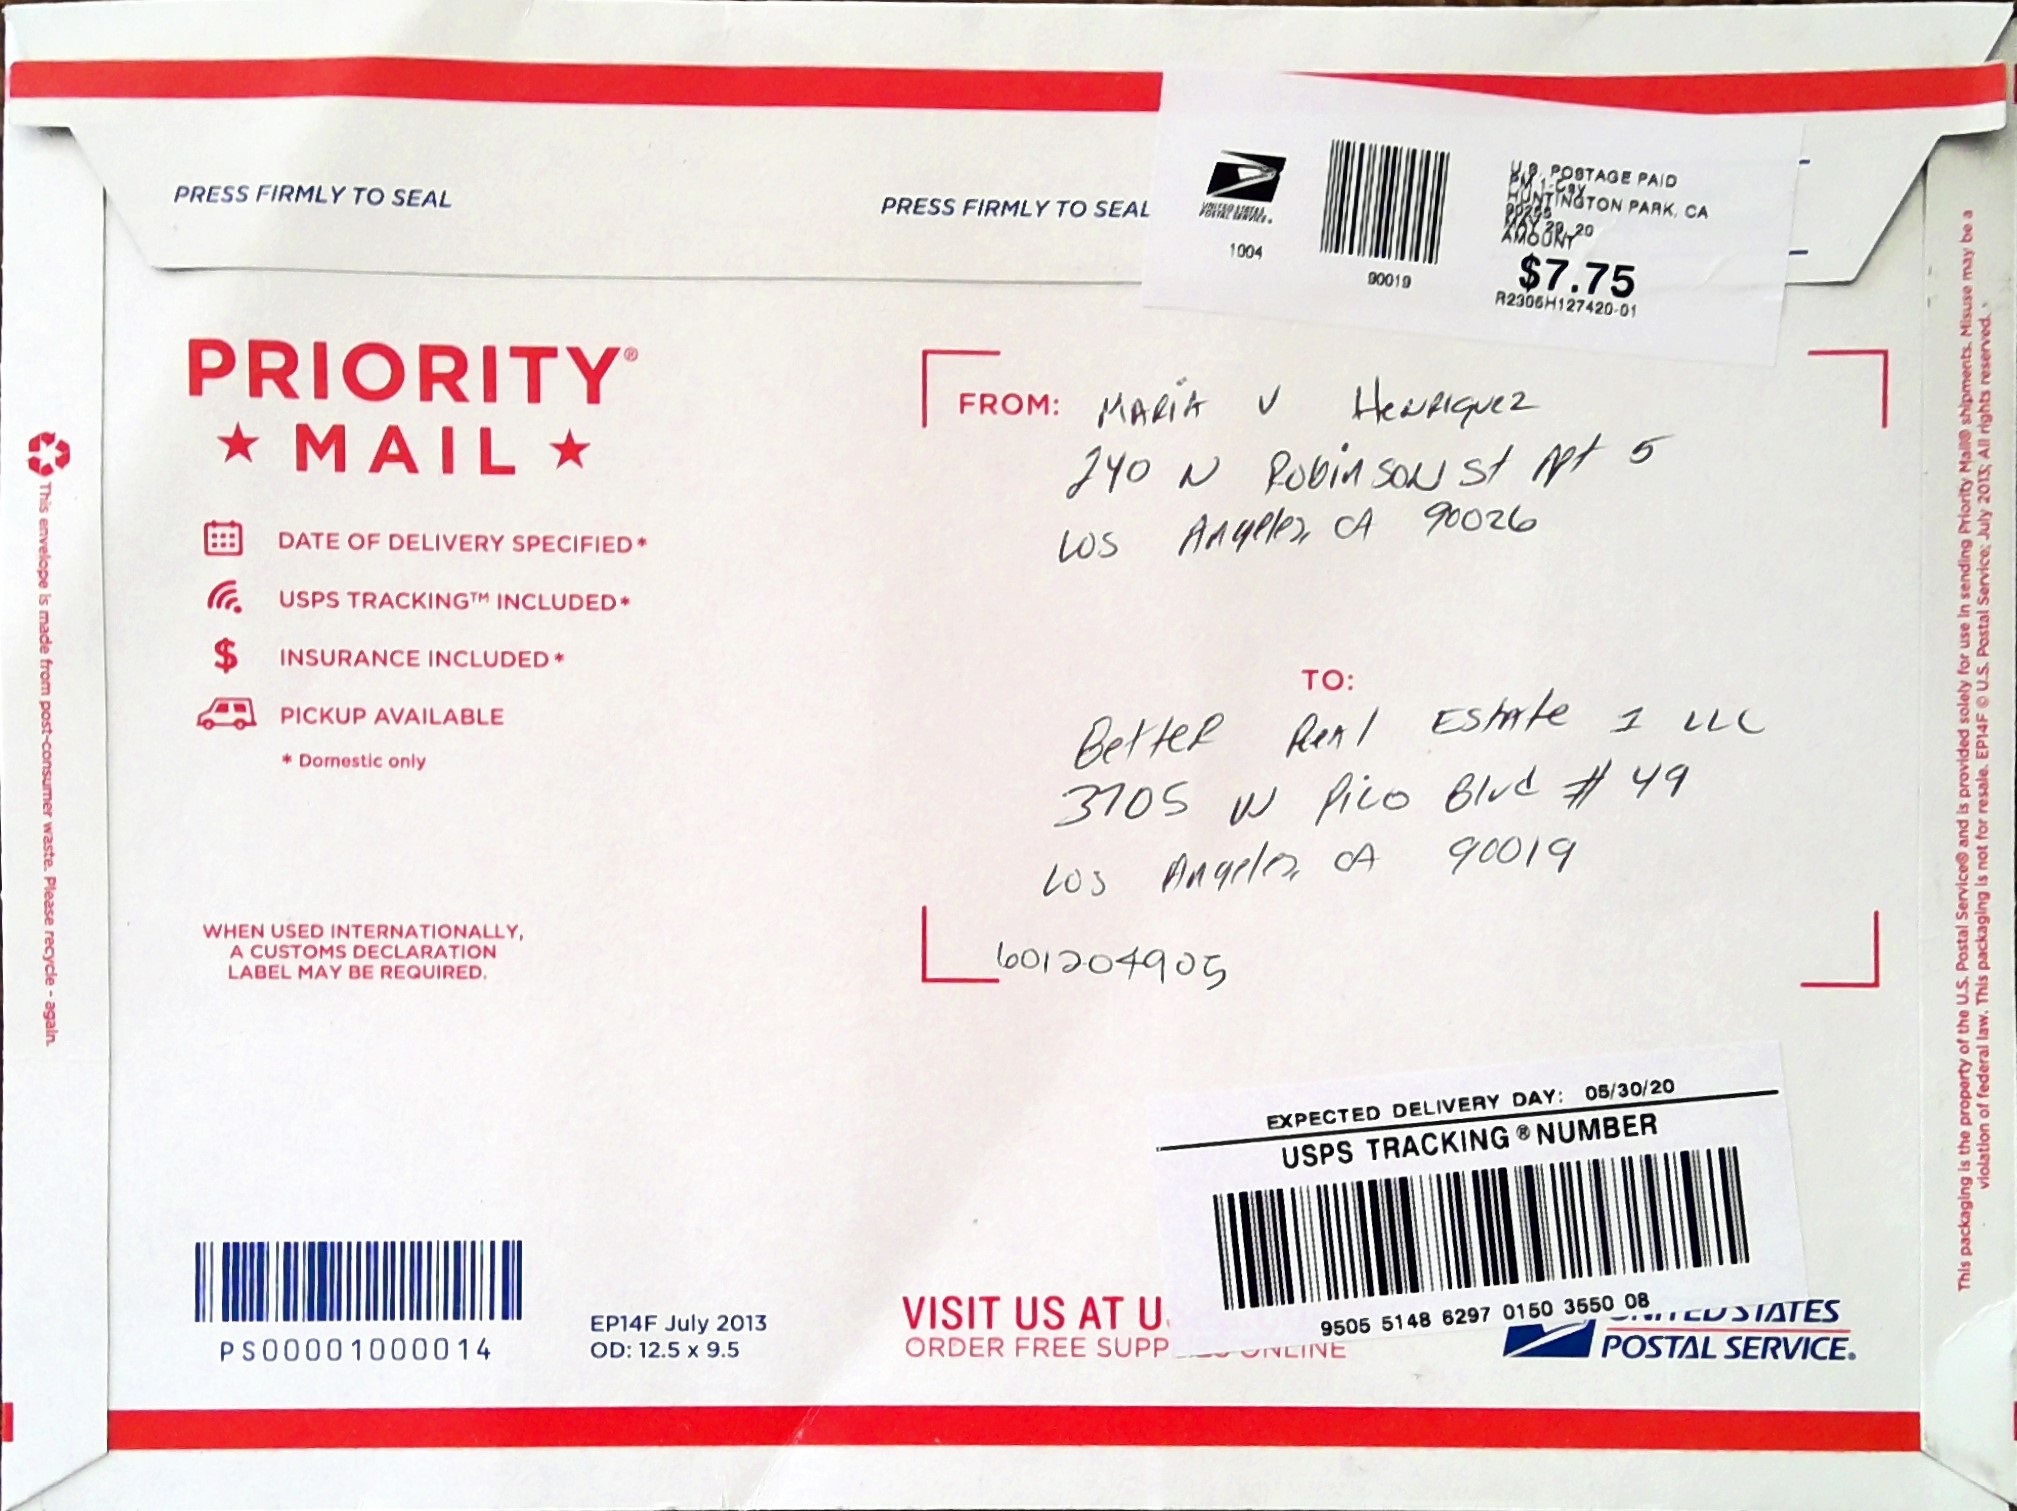 PRESS FIRMLY TO SEAL
PRESS FIRMLY TO SEAL
UNITED STATES
POSTAL SERVICE®
1004
90019
U.S. POSTAGE PAID
PM 1-Day
HUNTINGTON PARK, CA
90255
MAY 29, 20
AMOUNT
$7.75
R2305H127420-01
PRIORITY®
★ MAIL ★
DATE OF DELIVERY SPECIFIED*
USPS TRACKING™ INCLUDED*
$ INSURANCE INCLUDED*
PICKUP AVAILABLE
* Domestic only
WHEN USED INTERNATIONALLY,
A CUSTOMS DECLARATION
LABEL MAY BE REQUIRED.
FROM: MARIA V HENRIQUEZ
240 N ROBINSON St Apt 5
LOS Angeles, CA 90026
TO:
Better Real Estate 1 LLC
3705 W Pico Blvd # 49
Los Angeles, CA 90019
601204905
EXPECTED DELIVERY DAY: 05/30/20
USPS TRACKING® NUMBER
9505 5148 6297 0150 3550 08
PS00001000014
EP14F July 2013
OD: 12.5 x 9.5
VISIT US AT U
ORDER FREE SUPP ONLINE
UNITED STATES
POSTAL SERVICE®
This envelope is made from post-consumer waste. Please recycle - again.
This packaging is the property of the U.S. Postal Service® and is provided solely for use in sending Priority Mail® shipments. Misuse may be a
violation of federal law. This packaging is not for resale. EP14F © U.S. Postal Service; July 2013; All rights reserved.